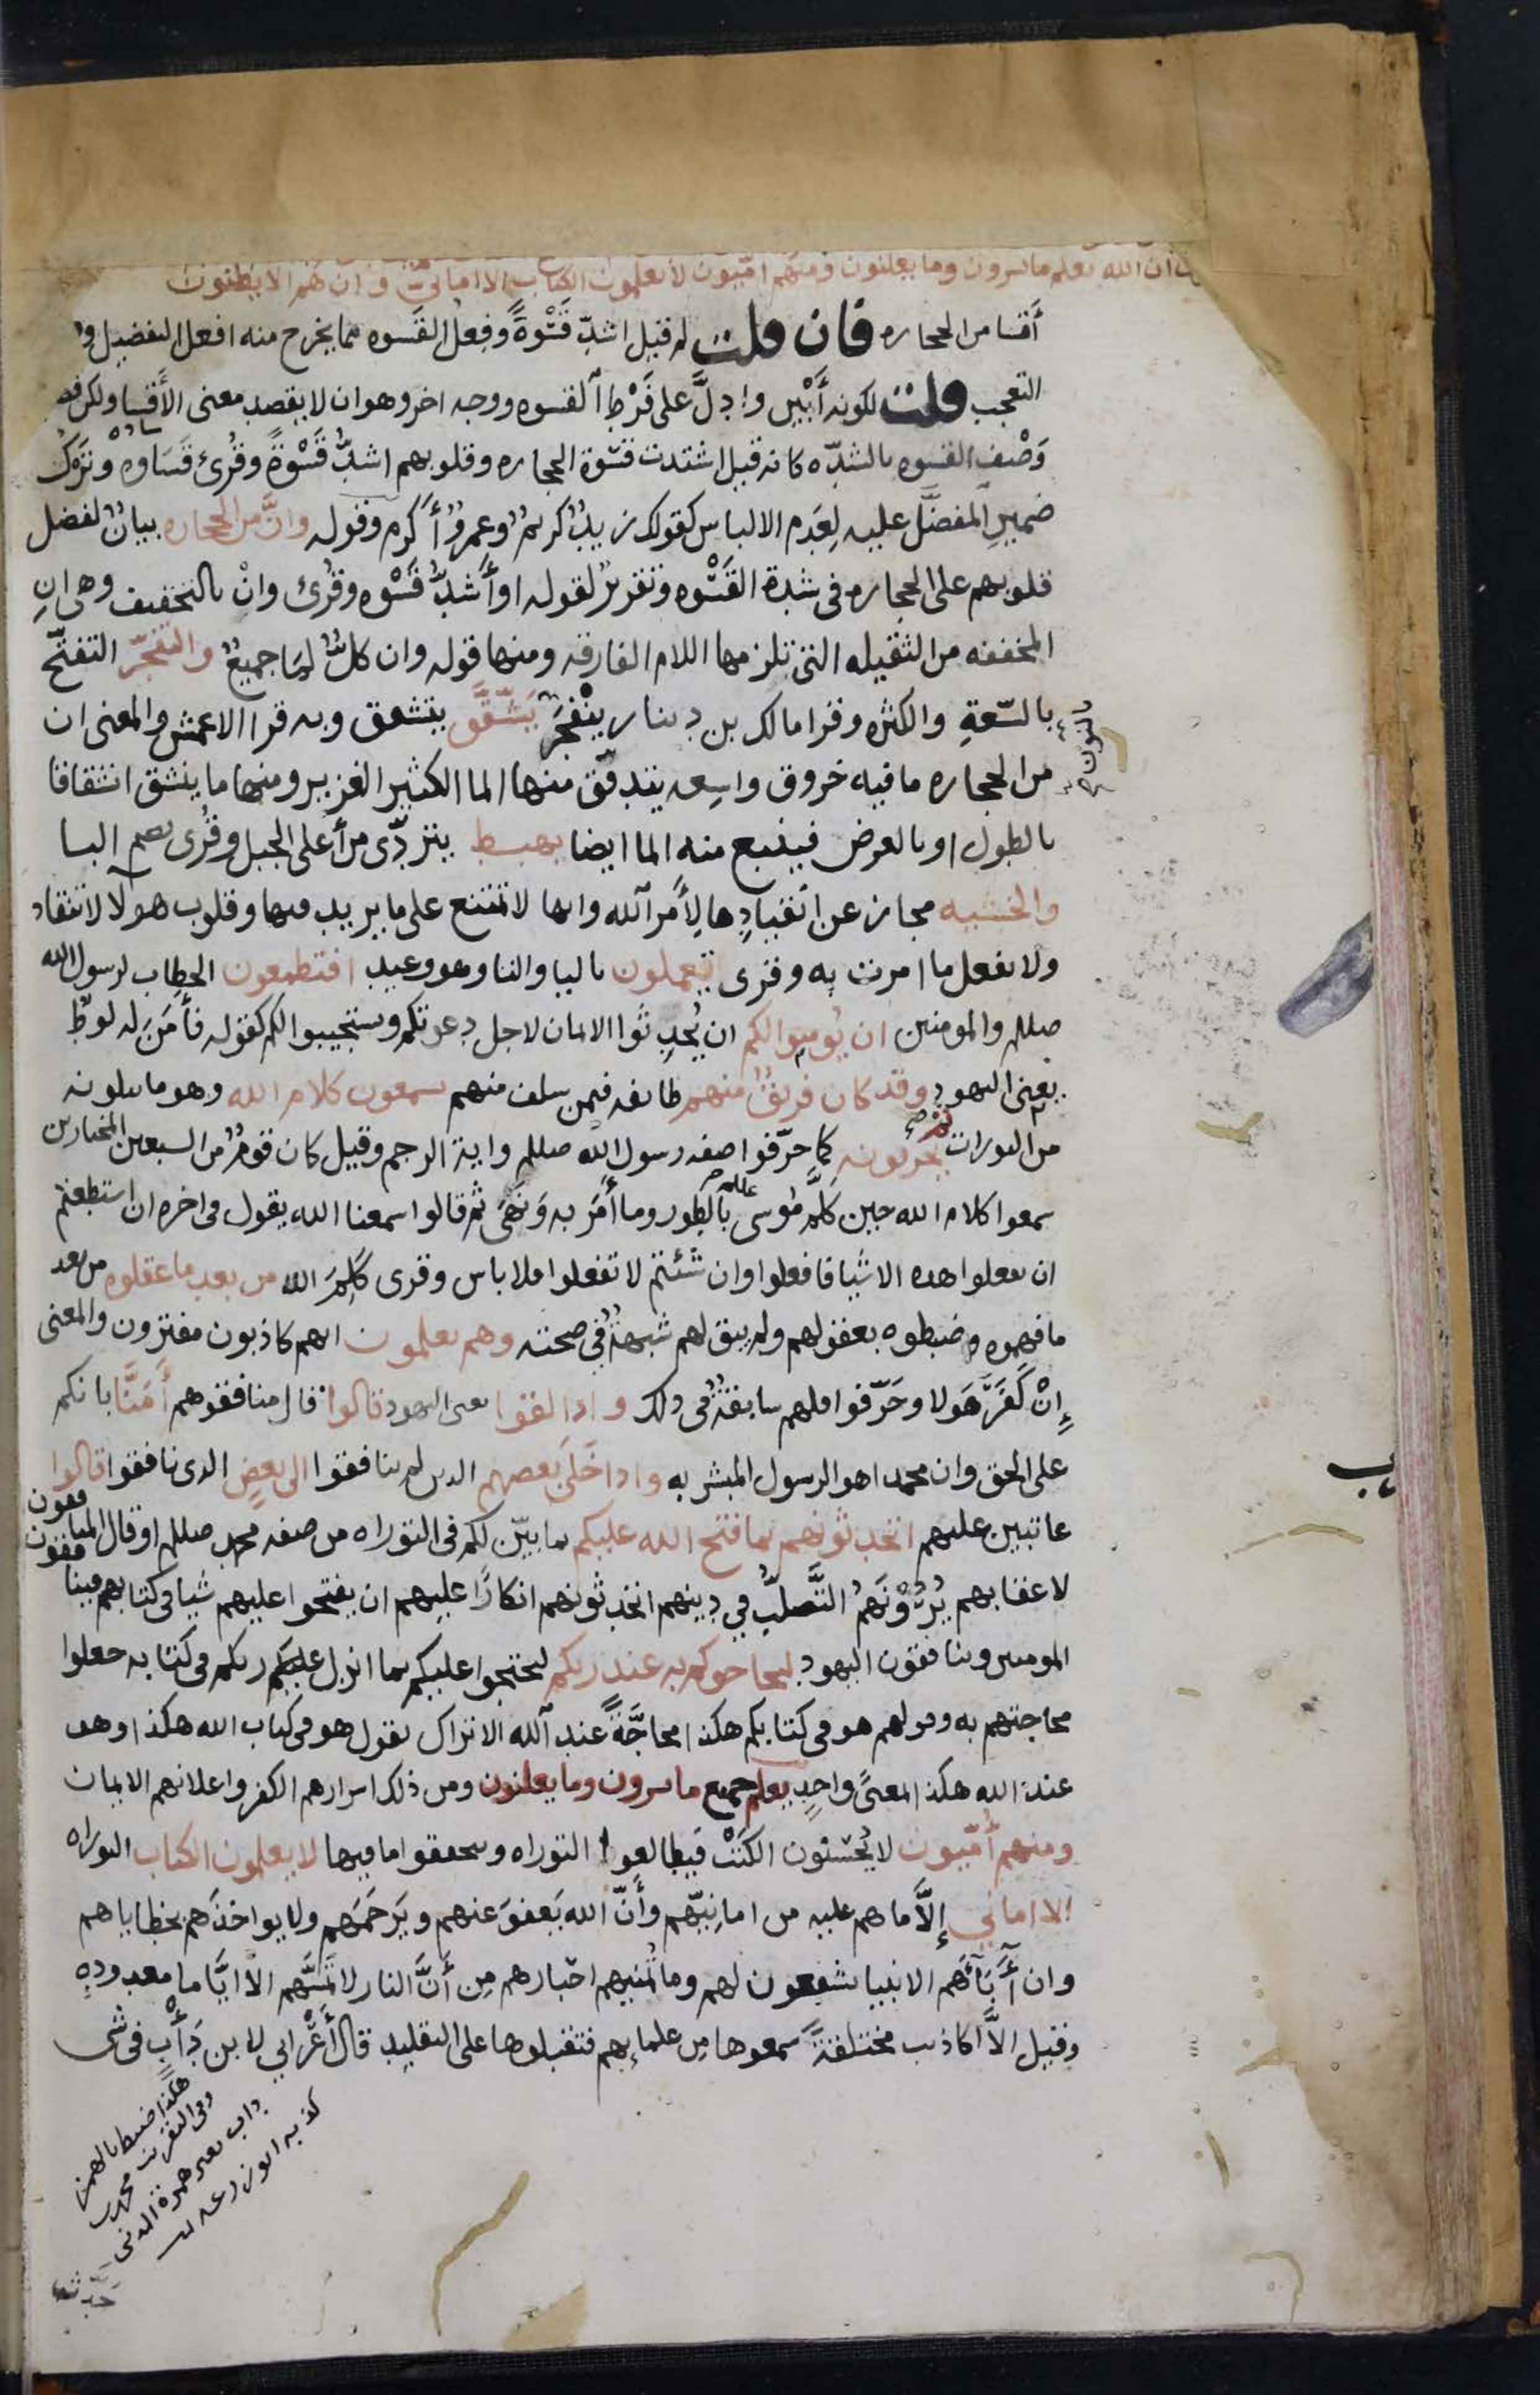 ان الله يعلم ما يسرون وما يعلنون ومنهم اميون لا يعلمون الكتاب الا اماني وان هم الا يظنون
أقسا من الحجاره فان قلت لم قيل اشدّ قَسْوةً وفِعل القَسوه مما يخرج منه افعل التفضيل و
التعجب قلت لكونه أَبْيَن وادلَّ على فَرْط القسوه ووجه اخر وهو ان لا يقصد معنى الأقسا ولكن قصد
وَصْف القسوه بالشدّه كانه قيل اشتدت قسْوة الحجاره وقلوبهم اشدُّ قَسْوةً وقُرئ قَسَاوه وتَرْك
ضميرِ المفضَّل عليه لِعَدَم الالباس كقولك زيدٌ كريمٌ وعمروٌ أكرم وقوله وانَّ من الحجاره بيانٌ لفضل
قلوبهم على الحجاره في شدة القَسْوه وتقريرٌ لقوله او أَشدُّ قَسْوه وقُرئ وانْ بالتخفيف وهي انِ
المخففه من الثقيله التي تلزمها اللام الفارقه ومنها قوله وان كلٌّ لما جميعٌ والتفجّر التفتّح
بالسّعةِ والكثره وقرا مالك بن دينار ينْفَجر يَشَّقَّق يتشقق وبه قرا الاعمش والمعنى ان
بالنون
من الحجاره ما فيه خروق واسِعه يتدفّق منها الما الكثير الغزير ومنها ما ينشق انشقاقا
بالطول او بالعرض فينبع منه الما ايضا يهبط يتردّى من أعلى الجبل وقُرى بضم البا
والخشيه مجاز عن انقيادِها لِأمر الله وانها لا تمتنع على ما يريد فيها وقلوب هولا لا تنقاد
ولا تفعل ما امرت به وقرى يعملون باليا والتا وهو وعيد افتطمعون الخطاب لرسول الله
صللم والمومنين ان يُومنوا لكم ان يُحدِثوا الايمان لاجل دعوتكم ويستجيبوا لكم كقوله فأمَنَ له لوطٌ
يعني اليهود وقد كان فريقٌ منهم طايفه فيمن سلف منهم يسمعون كلام الله وهو ما يتلونه
من التورات ثم يحرفونه كما حرّفوا صفه رسول الله صللم واية الرجم وقيل كان قومٌ من السبعين المختارين
سمعوا كلام الله حين كلَّم مُوسى بالطور وما أمَر به ونَهَى ثم قالوا سمعنا الله يقول في اخره ان استطعتم
ان تفعلوا هذه الاشيا فافعلوا وان شئتم لا تفعلوا فلا باس وقرى كَلِمَ الله من بعد ما عقلوه من بعد
ما فهموه وضبطوه بعقولهم ولم يبق لهم شبهةٌ في صحته وهم يعلمون انهم كاذبون مفترون والمعنى
إنْ كَفَرَ هَولا وحَرّفوا فلهم سابقةٌ في ذلك واذا لقوا يعني اليهود قالوا قال منافقوهم أمَنَّا بانكم
على الحق وان محمدا هو الرسول المبشر به واذا خَلَى بَعضهم الذين لم ينافقوا الى بعضٍ الذي نافقوا قالوا
عاتبين عليهم اتحدثونهم بما فتح الله عليكم بما بيّن لكم في التوراه من صفه محمد صللم او قال المنافقون
لاعقابهم يُرُوْنَهُمُ التَّصلّبُ في دينهم اتحدثونهم انكارًا عليهم ان يفتحوا عليهم شيا في كتابهم فينافقون
المومنين وينافقون اليهود ليحاجوكم به عند ربكم ليحتجوا عليكم بما انزل عليكم ربكم في كتابه جعلوا
محاجتهم به وقولهم هو في كتابكم هكذا محاجَّةً عند الله الا تراك تقول هو في كتاب الله هكذا وهو
عند الله هكذا المعنًى واحدٍ يعلم جميع ما يسرون وما يعلنون ومن ذلك اسرارهم الكفر واعلانهم الايمان
ومنهم أُمّيون لا يُحسنون الكَتْبَ فيطالعوا التوراه ويتحققوا ما فيها لا يعلمون الكتاب التوراه
الا اماني إلَّا ما هم عليه من امانِيّهم وأنّ الله يَعفوَ عنهم ويَرَحمَهم ولا يواخذَهم بخطاياهم
وان أَبَآءَهُم الانبيا يشفعون لهم وما تُمنيهم احبارهم مِن أَنَّ النار لا تَمسَّهم الا ايَّاما معدوده
وقيل الاَّ اكاذيب مختلقةً سمعوها مِن علمايهم فتقبلوها على التقليد قال أَعْرَابي لابن دَأْبٍ في شى
هكذا ضبط بالهمز
حدثه